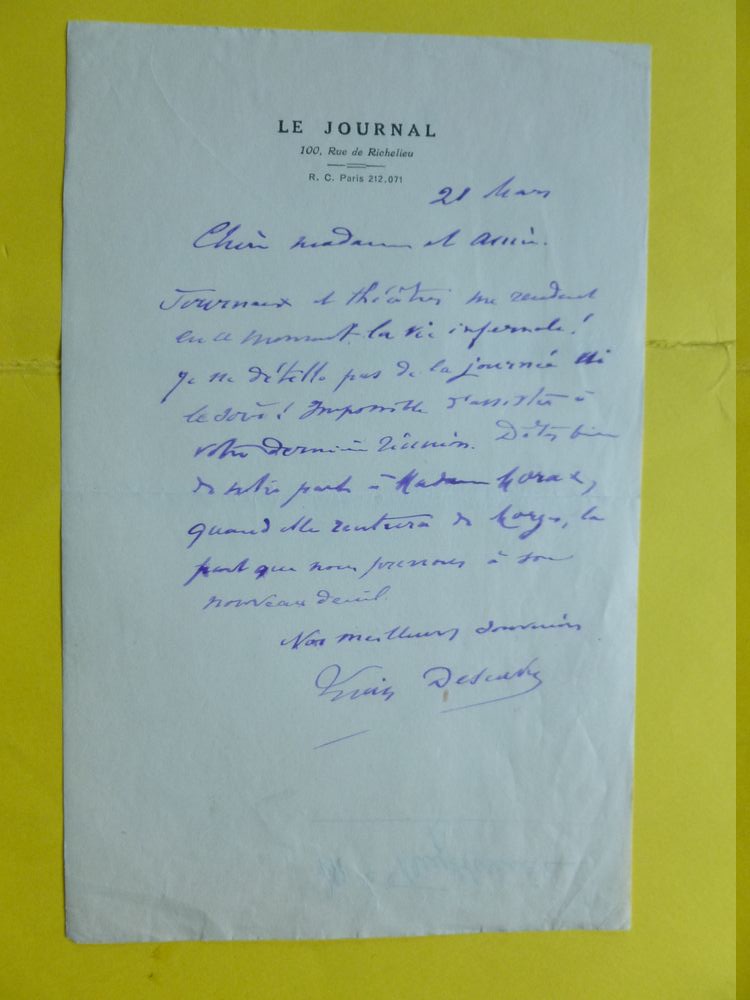 LE JOURNAL
100, Rue de Richelieu
R. C. Paris 212.071
21 Mars
Chère madame et amie.
Journaux et théâtres me rendent
en ce moment la vie infernale!
Je ne dételle pas de la journée ni
le soir! Impossible d'assister à
votre dernière réunion. Dites bien
de notre part à Madame Morax,
quand elle rentrera de Morges, la
part que nous prenons à son
nouveau deuil.
Nos meilleurs souvenirs
Lucien Descaves